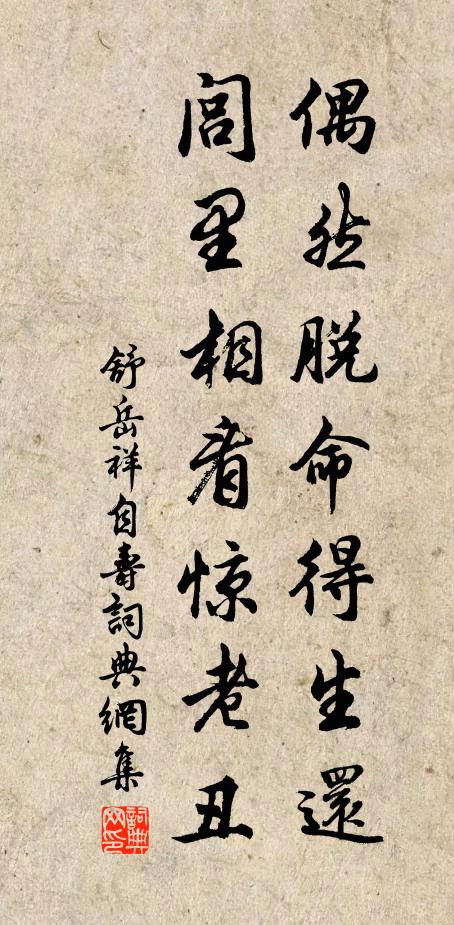 偶然脱命得生還
閭里相看惊老丑
舒岳祥自壽詞典網集
詞典网印